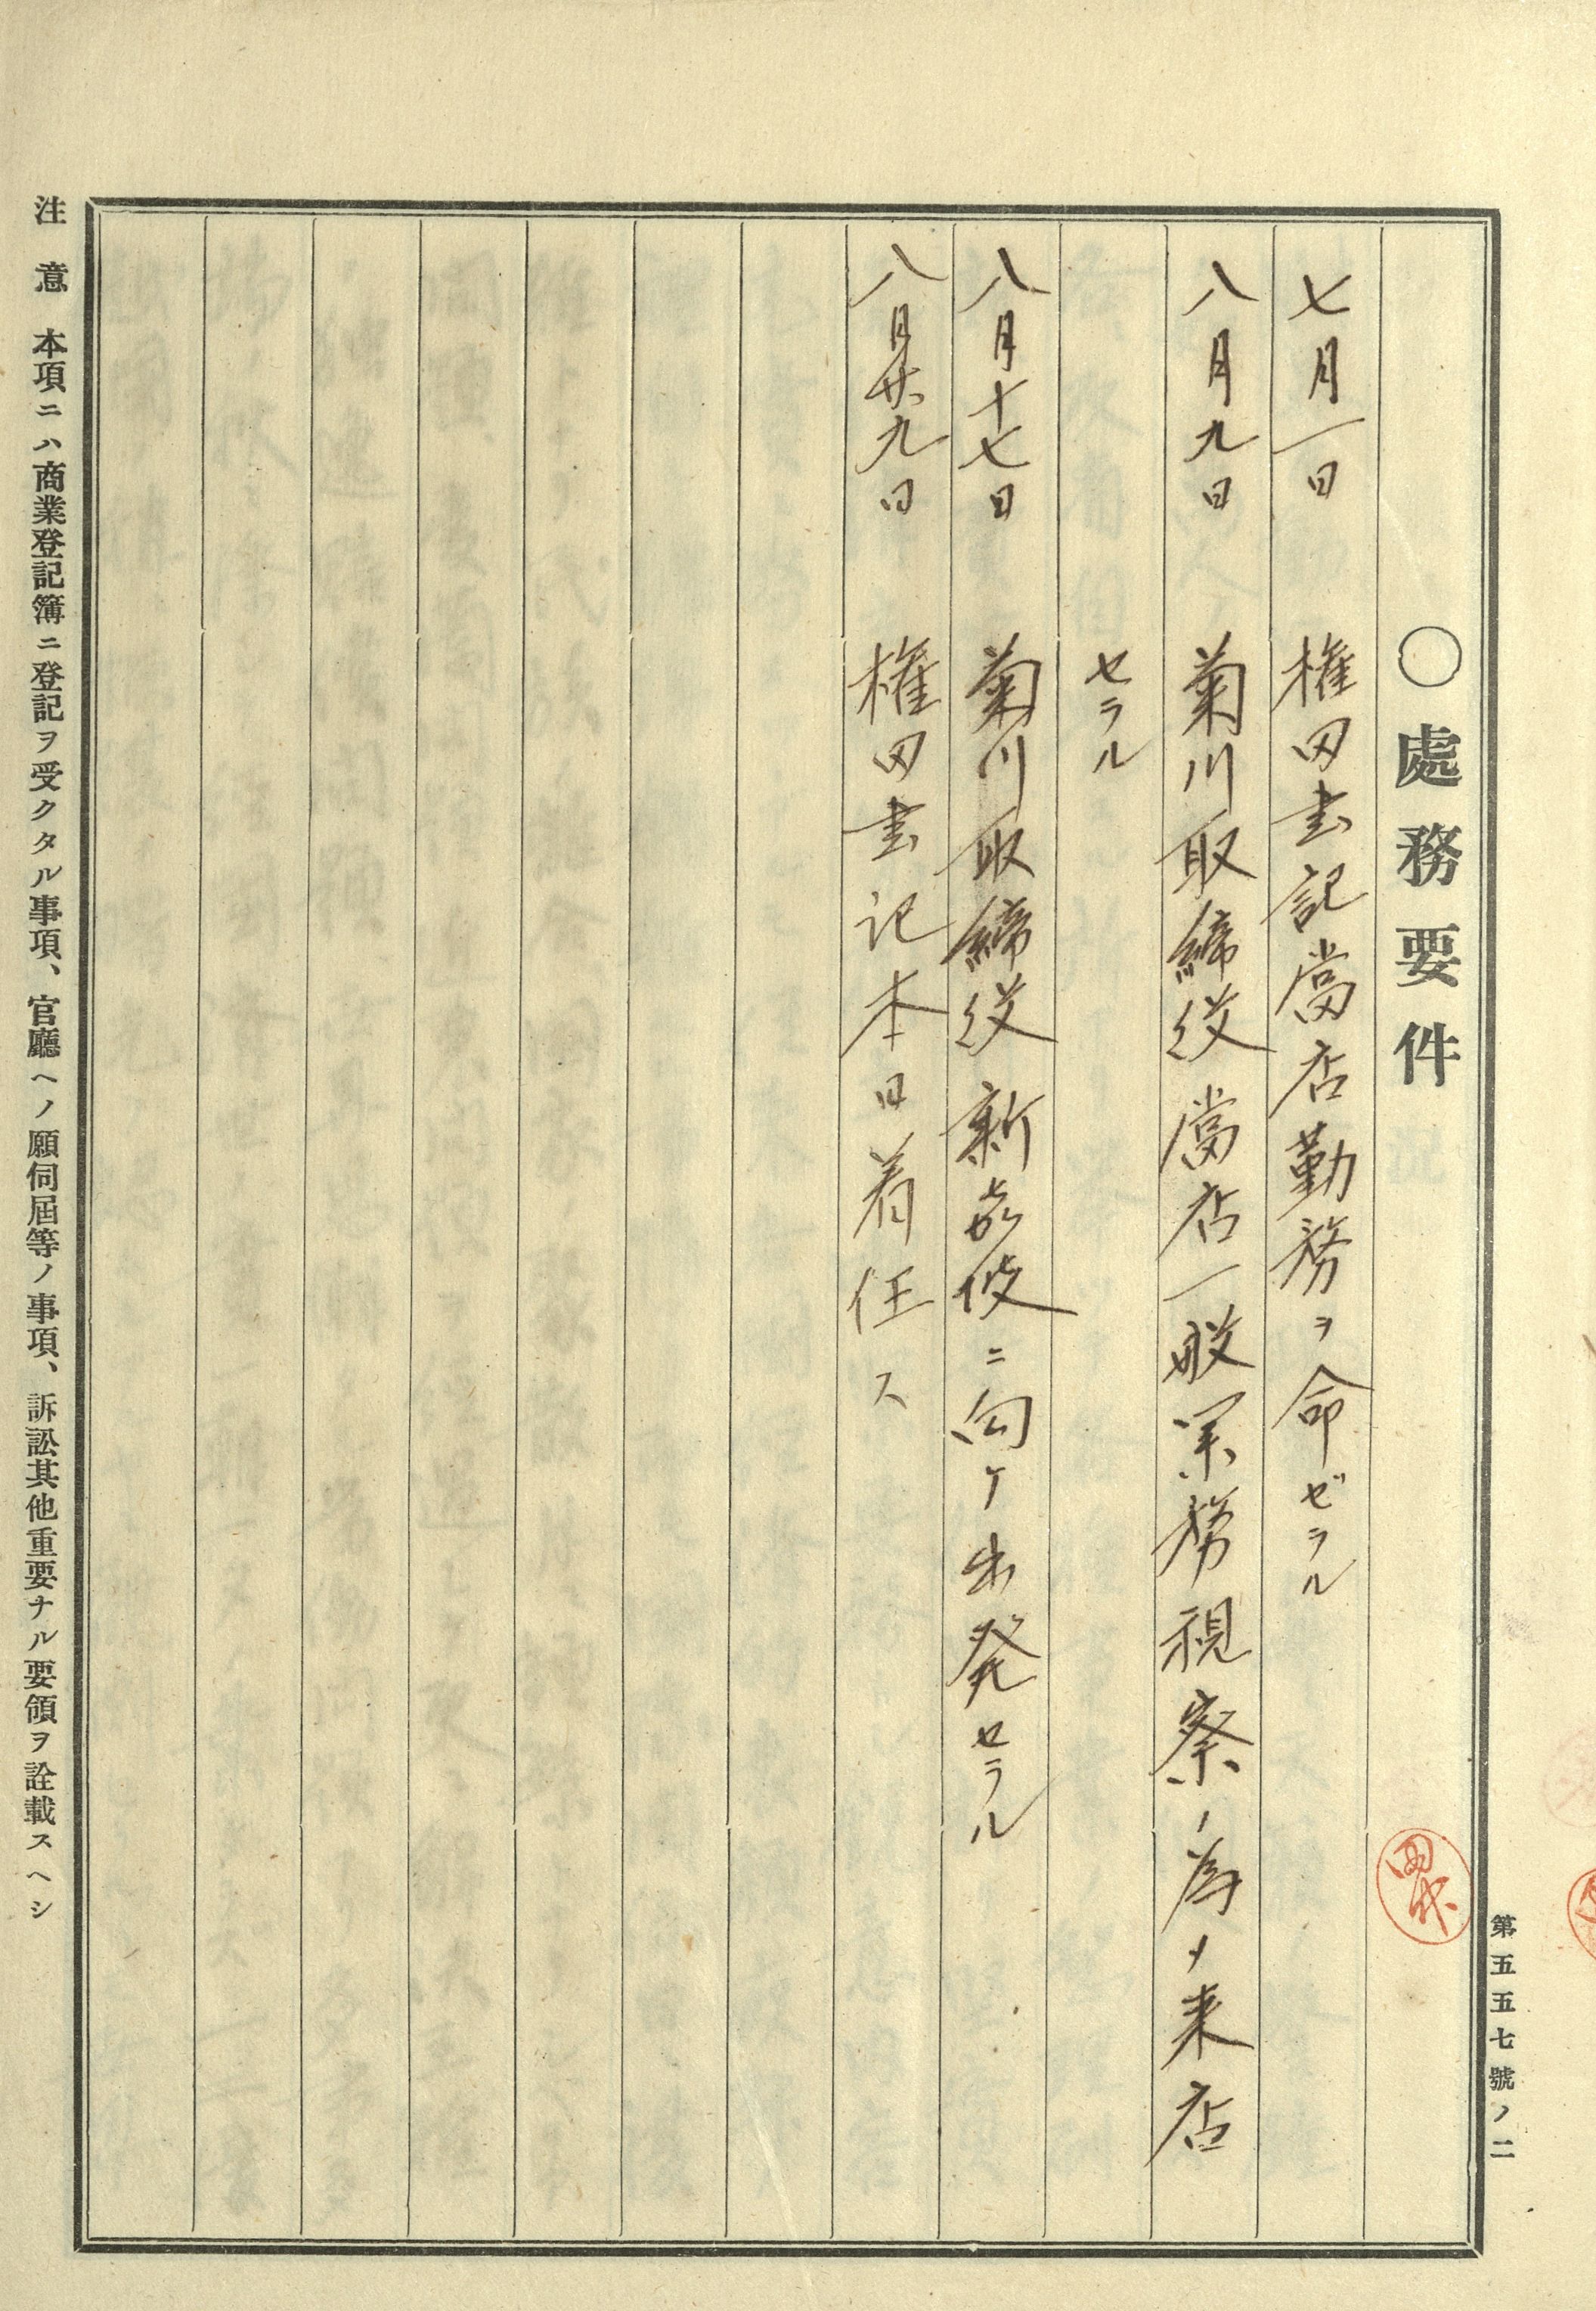 第五五七號ノ二
〇處務要件
七月一日 権田書記當店勤務ヲ命ゼラル
八月九日 菊川取締役當店一般業務視察ノ為メ来店
セラル
八月十七日 菊川取締役新嘉坡ニ向ケ出発セラル
八月廿九日 権田書記本日着任ス
注意 本項ニハ商業登記簿ニ登記ヲ受クタル事項、官廳ヘノ願伺屆等ノ事項、訴訟其他重要ナル要領ヲ詮載スヘシ